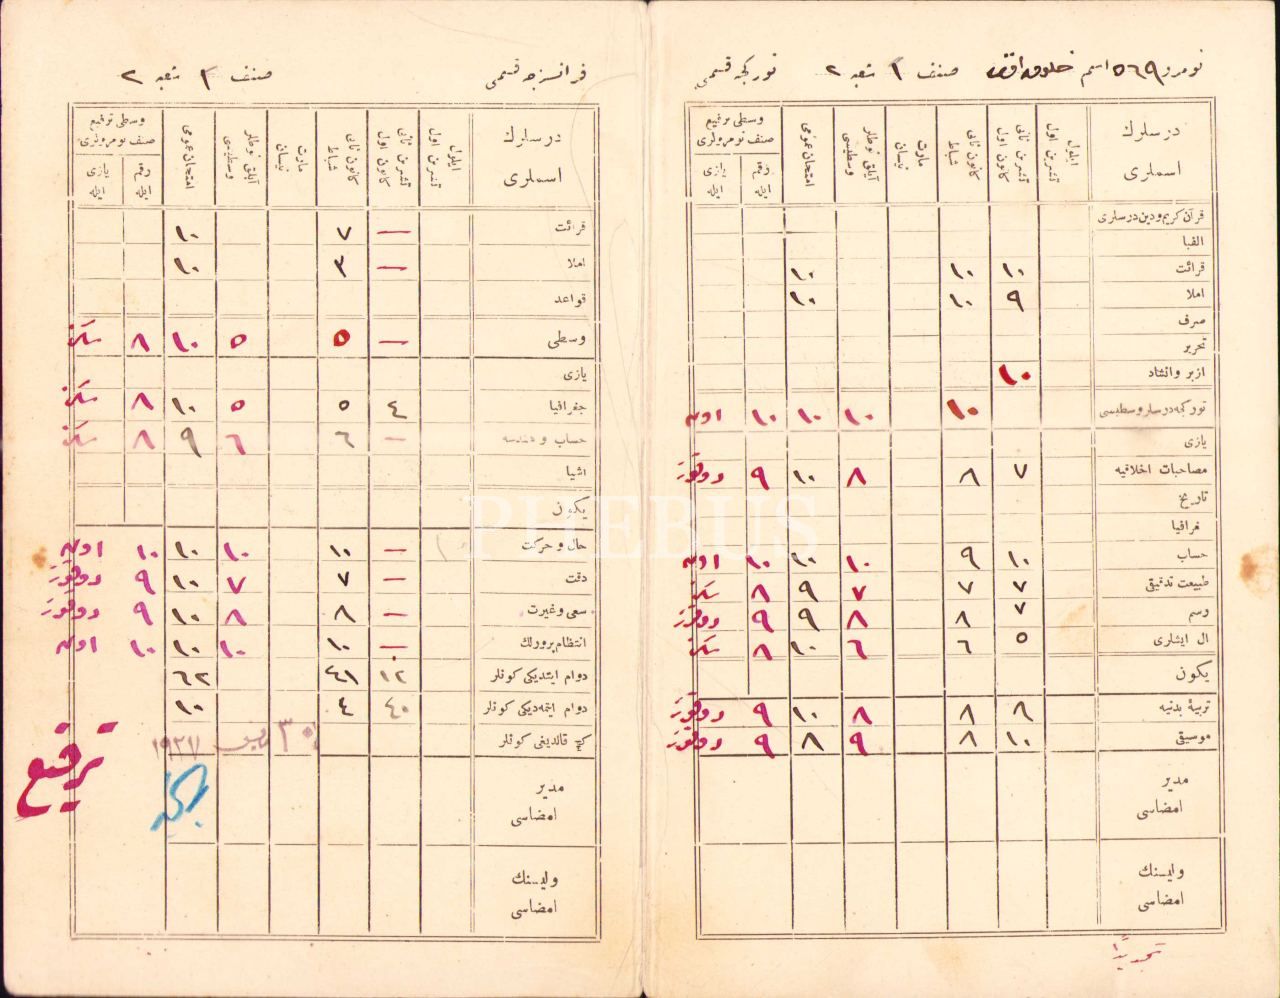 نومرو ٥٦٩ اسم خلوق افندی صنف ١ شعبه ٢ تورکجه قسمی
درسلرك اسملری
ایلول تشرین اول
تشرین ثانی کانون اول
کانون ثانی شباط
مارت نیسان
آیلق نوطلر وسطیسی
امتحان عمومی
وسطی ترفیع صنف نومرولری
رقم ایله
یازی ایله
قرآن کریم ودین درسلری
الفبا
قرائت ١٠ ١٠ ١٠
املا ٩ ١٠ ١٠
صرف
تحریر
ازبر وانشاد ١٠
تورکجه درسلر وسطیسی ١٠ ١٠ ١٠ ١٠ اون
یازی
مصاحبات اخلاقیه ٧ ٨ ٨ ١٠ ٩ دوقوز
تاریخ
غرافیا
حساب ١٠ ٩ ١٠ ١٠ ١٠ اون
طبیعت تدقیقی ٧ ٧ ٧ ٩ ٨ سکز
رسم ٧ ٨ ٨ ٩ ٩ دوقوز
ال ایشلری ٥ ٦ ٦ ١٠ ٨ سکز
یکون
تربیۀ بدنیه ٨ ٨ ٨ ١٠ ٩ دوقوز
موسیقی ١٠ ٨ ٩ ٨ ٩ دوقوز
مدیر امضاسی
ولیسنك امضاسی
فرانسزجه قسمی صنف ٢ شعبه ٢
درسلرك اسملری
ایلول تشرین اول
تشرین ثانی کانون اول
کانون ثانی شباط
مارت نیسان
آیلق نوطلر وسطیسی
امتحان عمومی
وسطی ترفیع صنف نومرولری
رقم ایله
یازی ایله
قرائت — ٧ ١٠
املا — ٣ ١٠
قواعد
وسطی — ٥ ٥ ١٠ ٨ سکز
یازی
جغرافیا ٤ ٥ ٥ ١٠ ٨ سکز
حساب و هندسه — ٦ ٦ ٩ ٨ سکز
اشیا
یکون
حال و حرکت — ١٠ ١٠ ١٠ ١٠ اون
دقت — ٧ ٧ ١٠ ٩ دوقوز
سعی وغیرت — ٨ ٨ ١٠ ٩ دوقوز
انتظام پرورلك — ١٠ ١٠ ١٠ ١٠ اون
دوام ایتدیکی کونلر ١٢ ٤١ ٦٢
دوام ایتمدیکی کونلر ٤٠ ٤ ١٠
کچ قالدیغی کونلر
٣٠ ١٩٢٧
ترفیع
مدیر امضاسی
ولیسنك امضاسی
PHEBUS